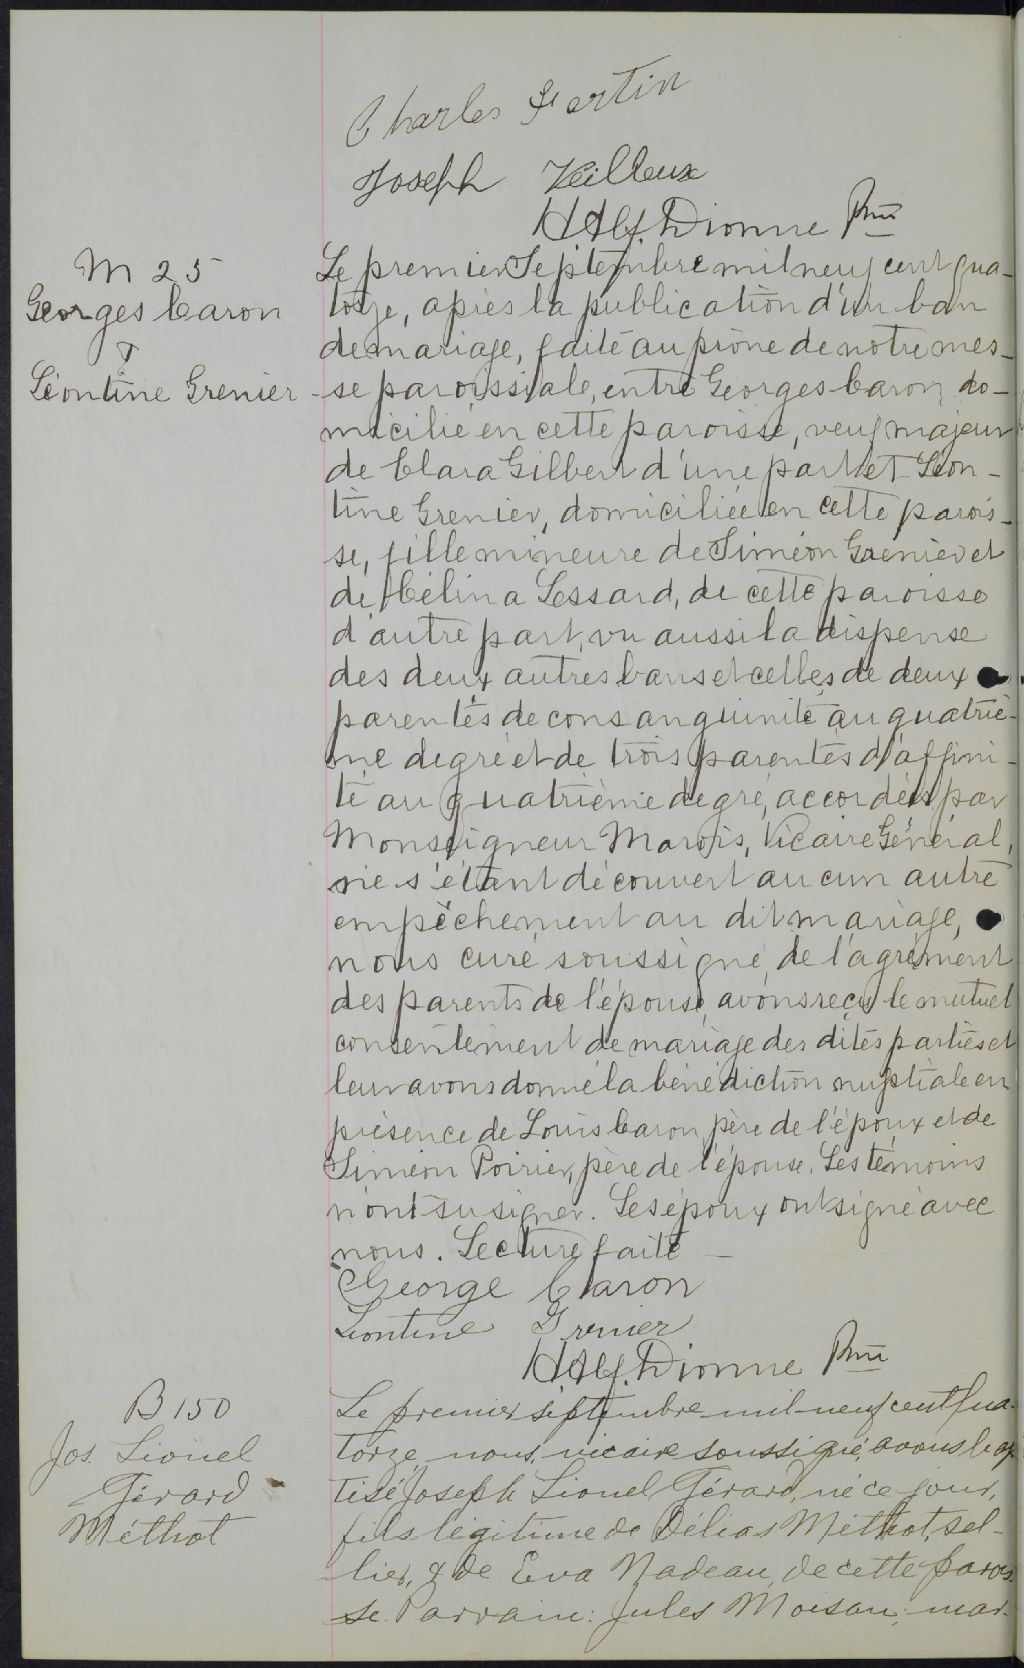 Charles Fortin
Joseph Veilleux
H Alf. Dionne Ptre
M 25
Georges Caron
&
Léontine Grenier
Le premier Septembre mil neuf cent qua-
torze, après la publication d'un ban
de mariage, faite au prône de notre mes-
se paroissiale, entre Georges Caron, do-
micilié en cette paroisse, veuf majeur
de Clara Gilbert d'une part et Léon-
tine Grenier, domiciliée en cette parois-
se, fille mineure de Siméon Grenier et
de Célina Lessard, de cette paroisse
d'autre part, vu aussi la dispense
des deux autres bans et celles de deux
parentés de consanguinité au quatriè-
me degré et de trois parentés d'affini-
té au quatrième degré, accordés par
Monseigneur Marois, Vicaire Général,
ne s'étant découvert aucun autre
empêchement au dit mariage,
nous curé soussigné, de l'agrément
des parents de l'épouse, avons reçu le mutuel
consentement de mariage des dites parties et
leur avons donné la bénédiction nuptiale en
présence de Louis Caron père de l'époux et de
Siméon Poirier, père de l'épouse. Les témoins
n'ont su signer. Les époux ont signé avec
nous. Lecture faite
George Caron
Liontine Grenier
H Alf. Dionne Ptre
B 150
Jos. Lionel
Gérard
Méthot
Le premier septembre mil neuf cent qua-
torze, nous, vicaire soussigné, avons bap
tisé Joseph Lionel Gérard, né ce jour,
fils légitime de Délias Méthot, sel-
lier, & de Eva Nadeau, de cette parois-
se. Parrain: Jules Moisan; mar-